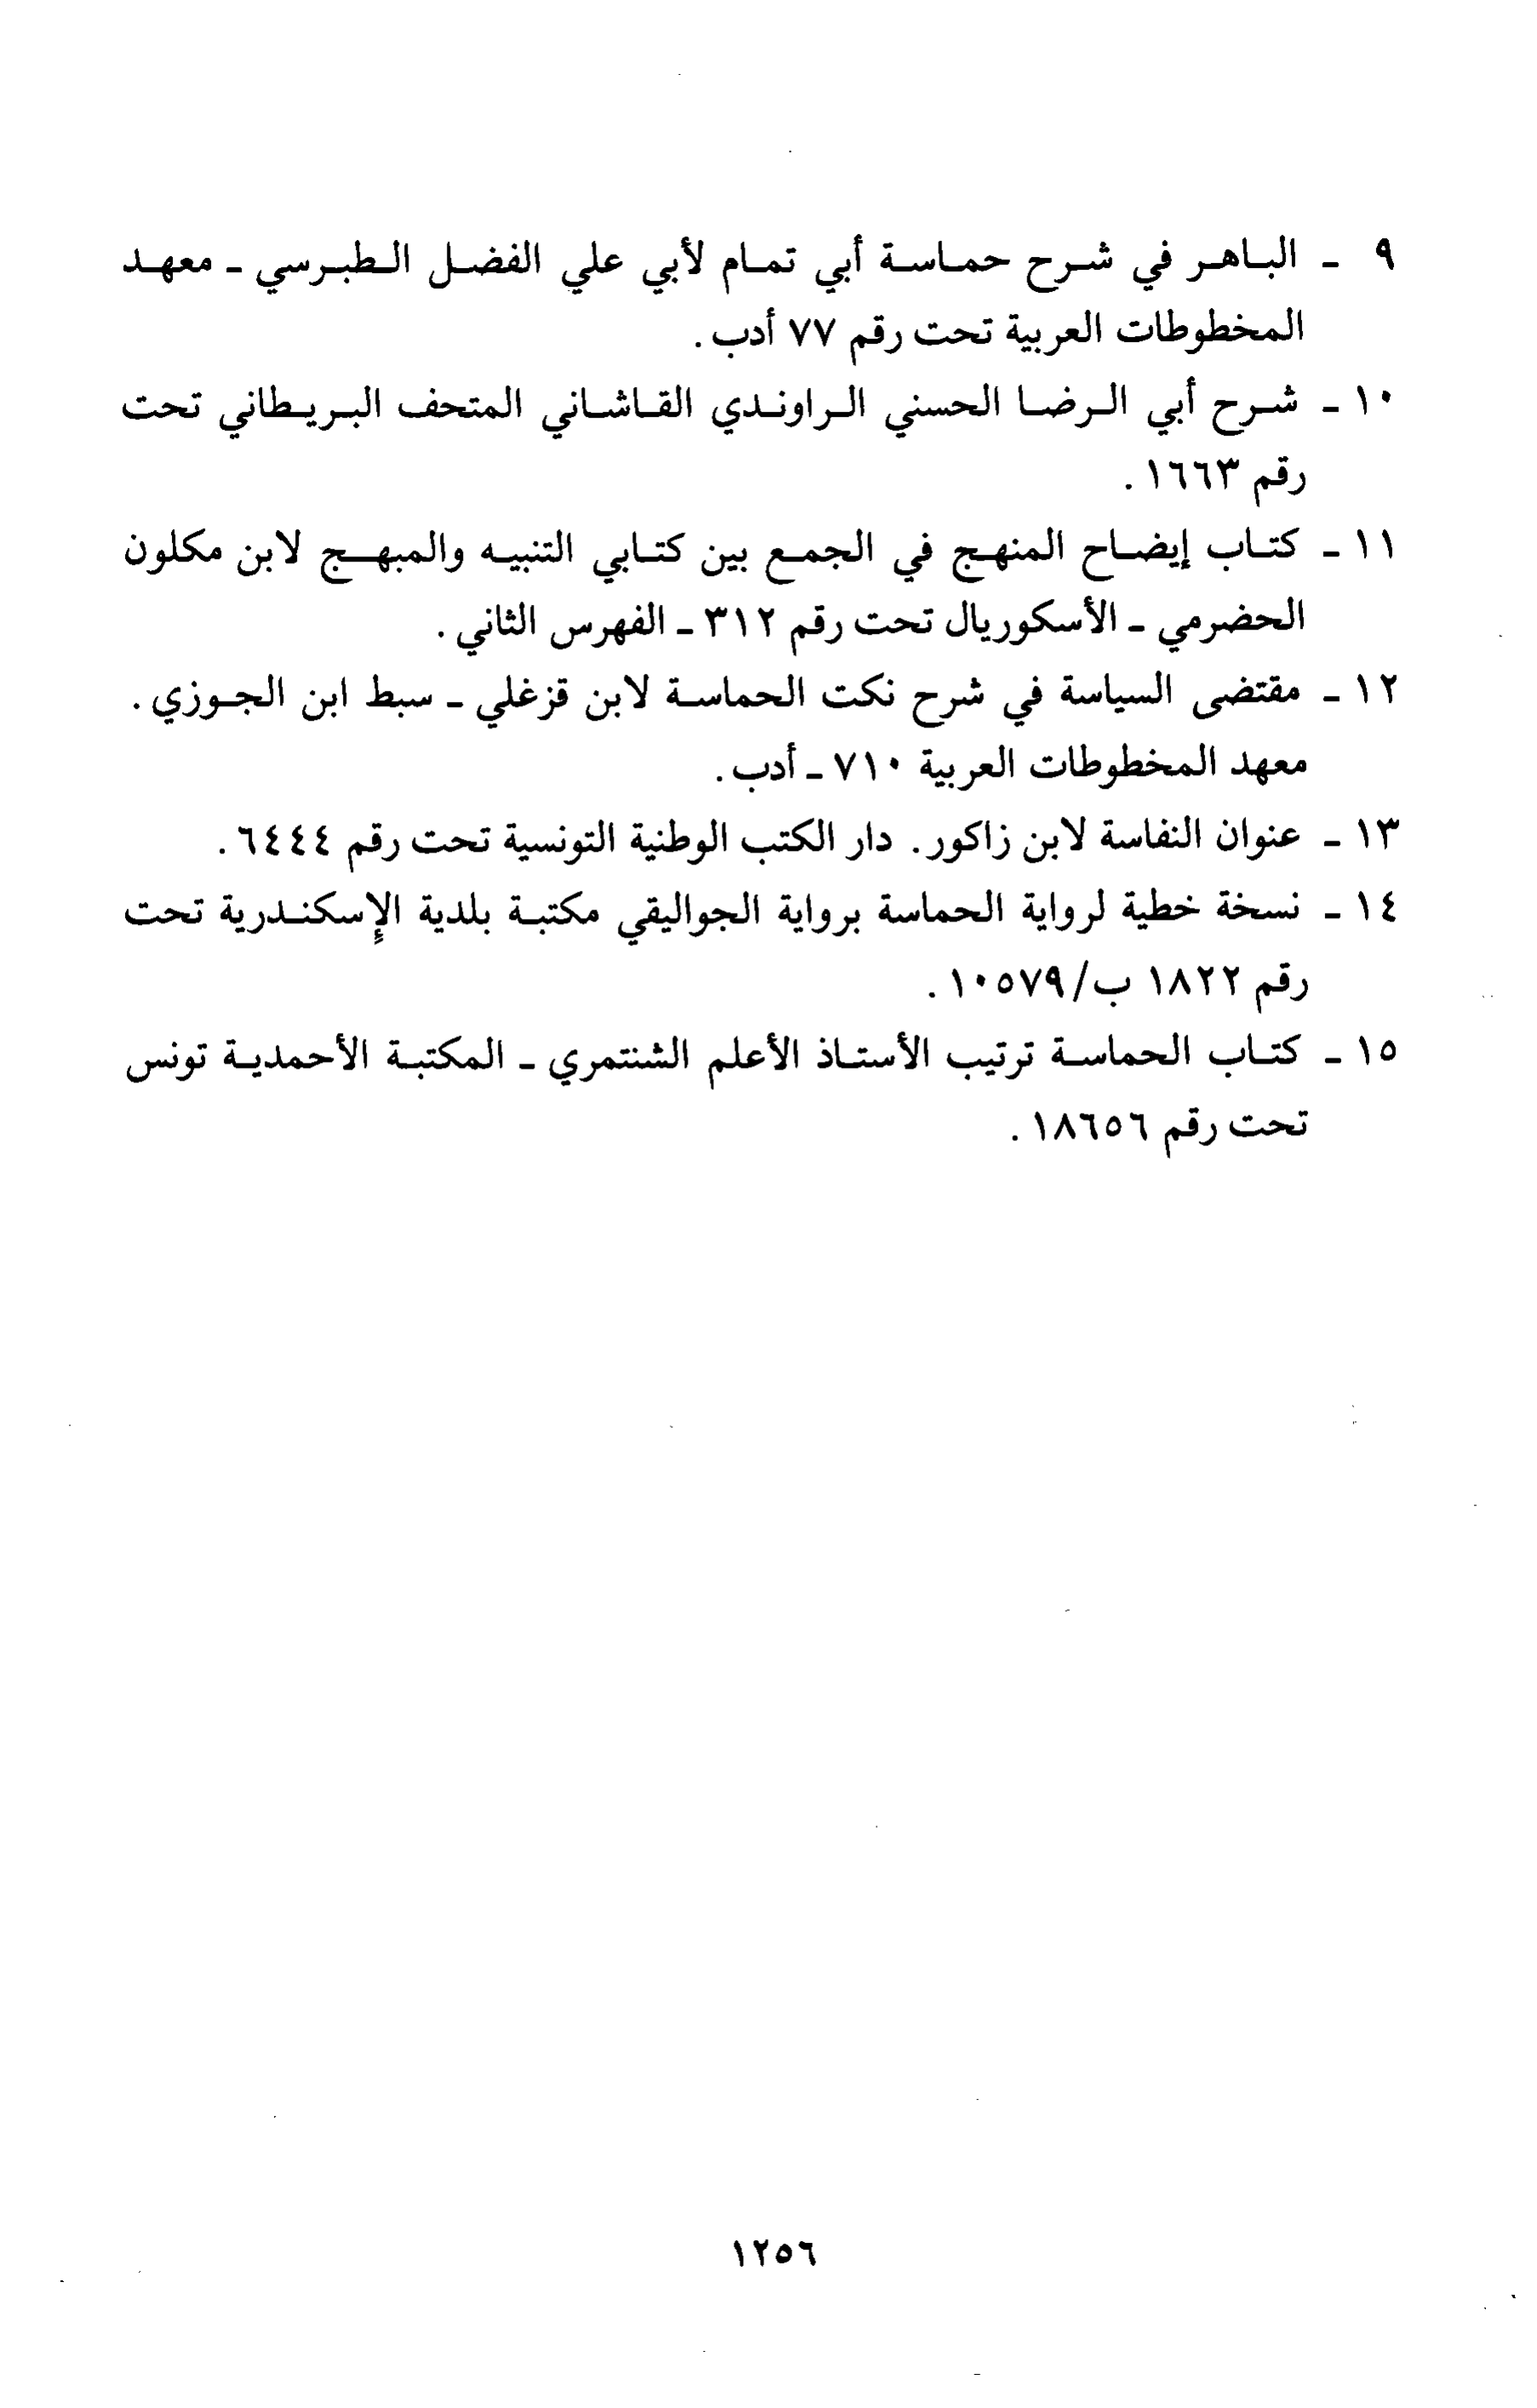 ٩ - الباهر في شرح حماسة أبي تمام لأبي علي الفضل الطبرسي - معهد
المخطوطات العربية تحت رقم ٧٧ أدب.
١٠ - شرح أبي الرضا الحسني الراوندي القاشاني المتحف البريطاني تحت
رقم ١٦٦٣.
١١ - كتاب إيضاح المنهج في الجمع بين كتابي التنبيه والمبهج لابن مكلون
الحضرمي - الأسكوريال تحت رقم ٣١٢ - الفهرس الثاني.
١٢ - مقتضى السياسة في شرح نكت الحماسة لابن قزغلي - سبط ابن الجوزي.
معهد المخطوطات العربية ٧١٠ - أدب.
١٣ - عنوان النفاسة لابن زاكور. دار الكتب الوطنية التونسية تحت رقم ٦٤٤٤.
١٤ - نسخة خطية لرواية الحماسة برواية الجواليقي مكتبة بلدية الإسكندرية تحت
رقم ١٨٢٢ ب/١٠٥٧٩.
١٥ - كتاب الحماسة ترتيب الأستاذ الأعلم الشنتمري - المكتبة الأحمدية تونس
تحت رقم ١٨٦٥٦.
١٢٥٦